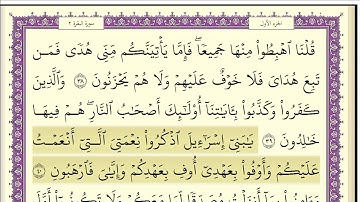 سورة البقرة ٢ الجزء الأول
قُلْنَا ٱهْبِطُوا۟ مِنْهَا جَمِيعًا ۖ فَإِمَّا يَأْتِيَنَّكُم مِّنِّى هُدًى فَمَن
تَبِعَ هُدَاىَ فَلَا خَوْفٌ عَلَيْهِمْ وَلَا هُمْ يَحْزَنُونَ ٣٨ وَٱلَّذِينَ
كَفَرُوا۟ وَكَذَّبُوا۟ بِـَٔايَـٰتِنَآ أُو۟لَـٰٓئِكَ أَصْحَـٰبُ ٱلنَّارِ ۖ هُمْ فِيهَا
خَـٰلِدُونَ ٣٩ يَـٰبَنِىٓ إِسْرَٰٓءِيلَ ٱذْكُرُوا۟ نِعْمَتِىَ ٱلَّتِىٓ أَنْعَمْتُ
عَلَيْكُمْ وَأَوْفُوا۟ بِعَهْدِىٓ أُوفِ بِعَهْدِكُمْ وَإِيَّـٰىَ فَٱرْهَبُونِ ٤٠